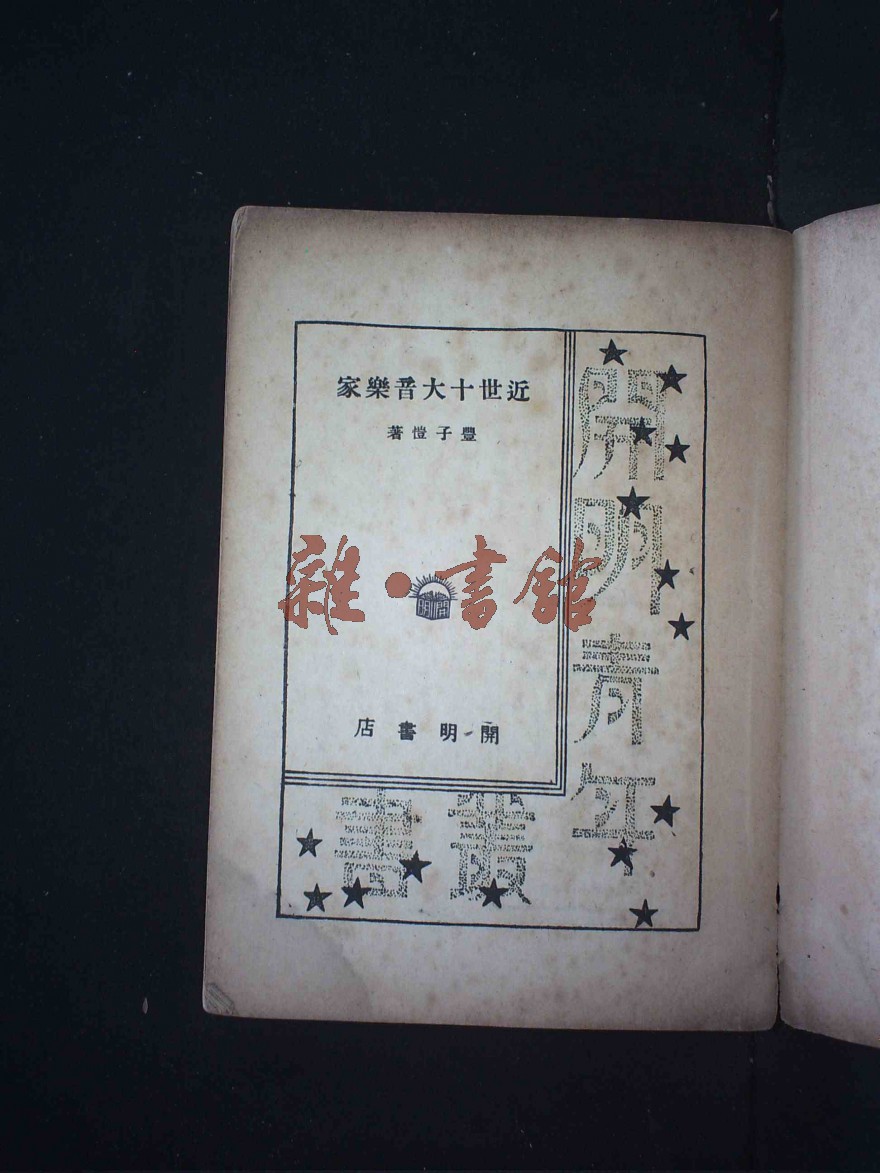 近世十大音樂家
豐子愷著
雜·書館
開明
開明書店
開明青年
叢書